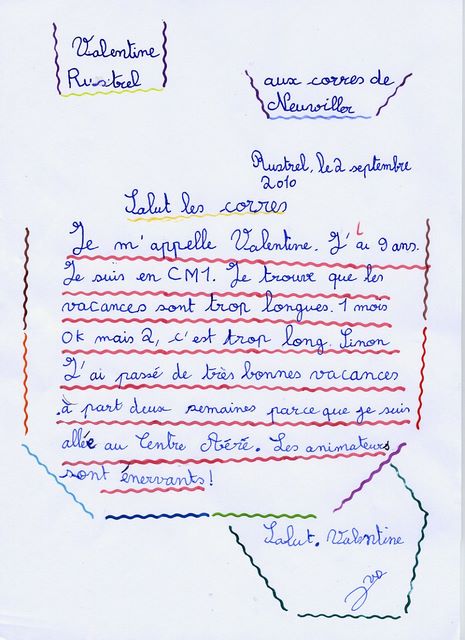 Valentine
Rustrel
aux corres de
Neuwiller
Rustrel, le 2 septembre
2010
Salut les corres
Je m'appelle Valentine. J'ai 9 ans.
Je suis en CM1. Je trouve que les
vacances sont trop longues. 1 mois
OK mais 2, c'est trop long. Sinon
J'ai passé de très bonnes vacances
à part deux semaines parce que je suis
allée au Centre Aéré. Les animateurs
sont énervants!
Salut. Valentine